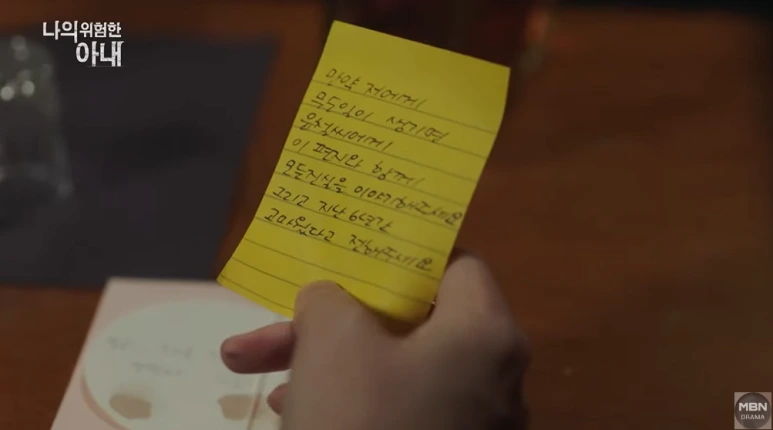 나의 위험한
아내
만약 저에게
무슨일이 생기면
윤철씨에게
이 편지와 함께
모든진실을 이야기해주세요
그리고 지난 6년간
고마웠다고 전해주세요
MBN
DRAMA